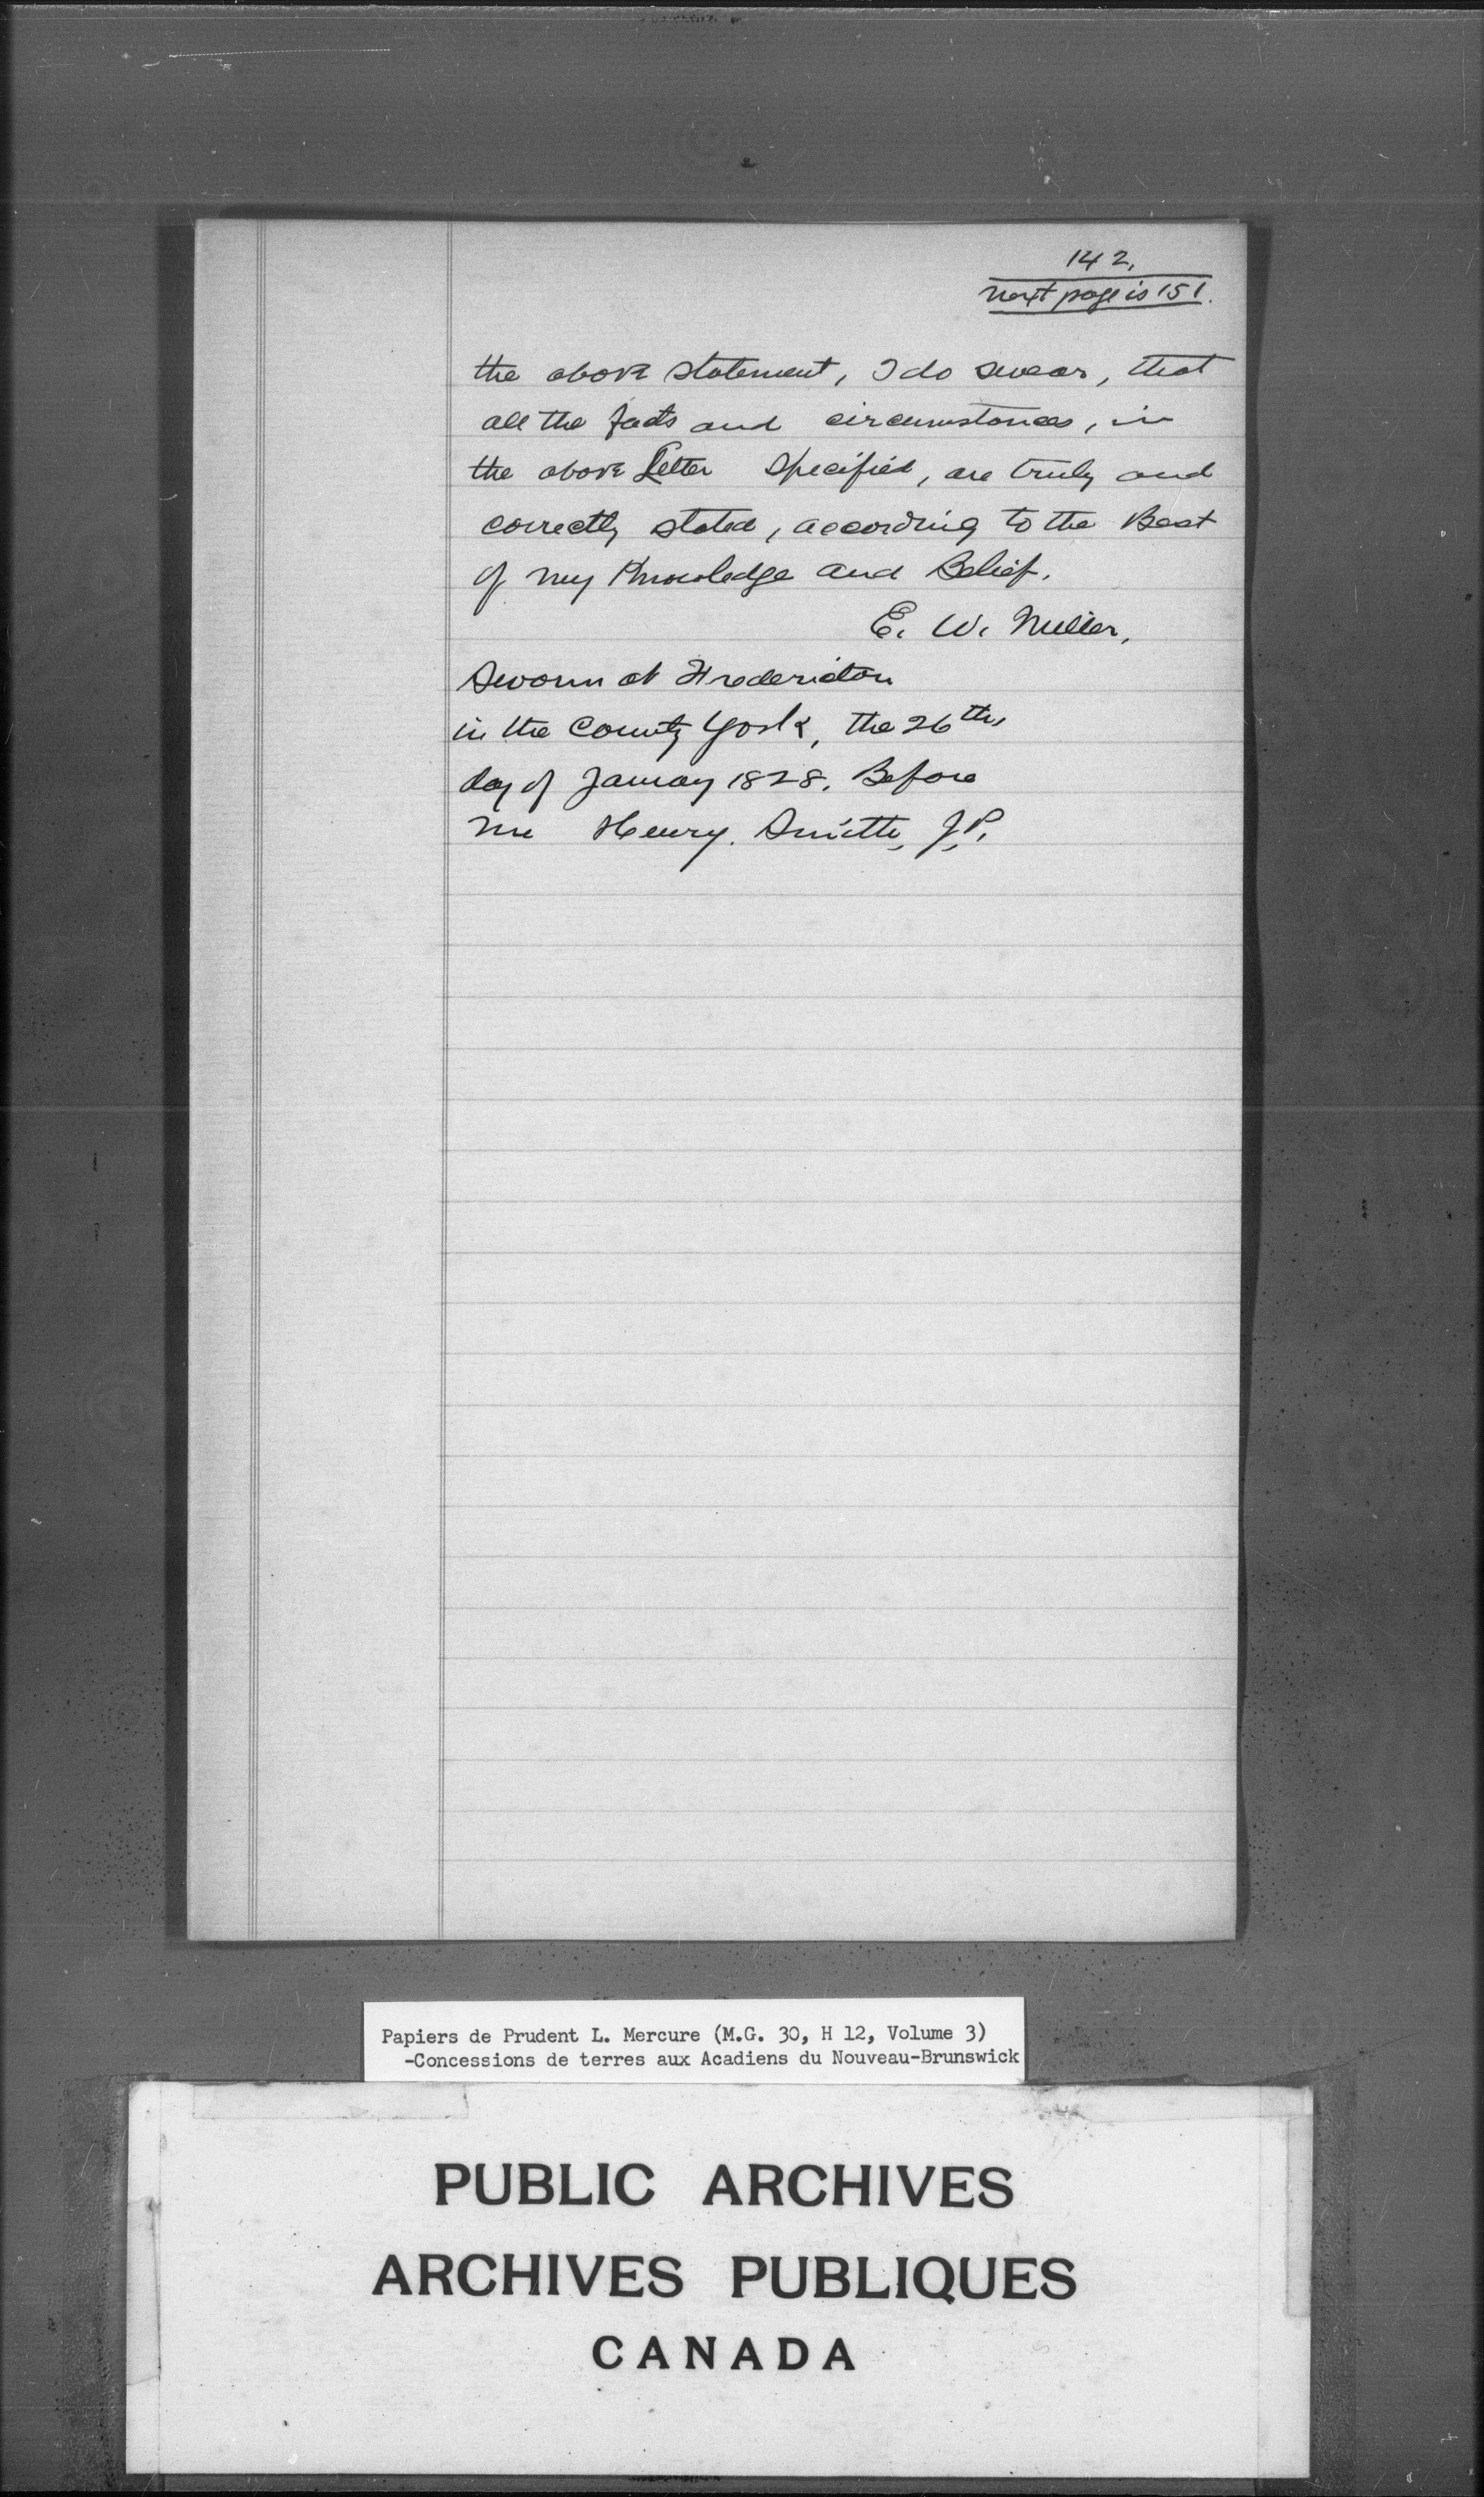 142,
next page is 151.
the above statement, I do swear, that
all the facts and circumstances, in
the above Letter specified, are truly and
correctly stated, according to the Best
of my Knowledge and Belief.
E. W. Miller,
Sworn at Fredericton
in the County York, the 26th,
day of January 1828. Before
me Henry. Smith, J.P.
Papiers de Prudent L. Mercure (M.G. 30, H 12, Volume 3)
-Concessions de terres aux Acadiens du Nouveau-Brunswick
PUBLIC ARCHIVES
ARCHIVES PUBLIQUES
CANADA